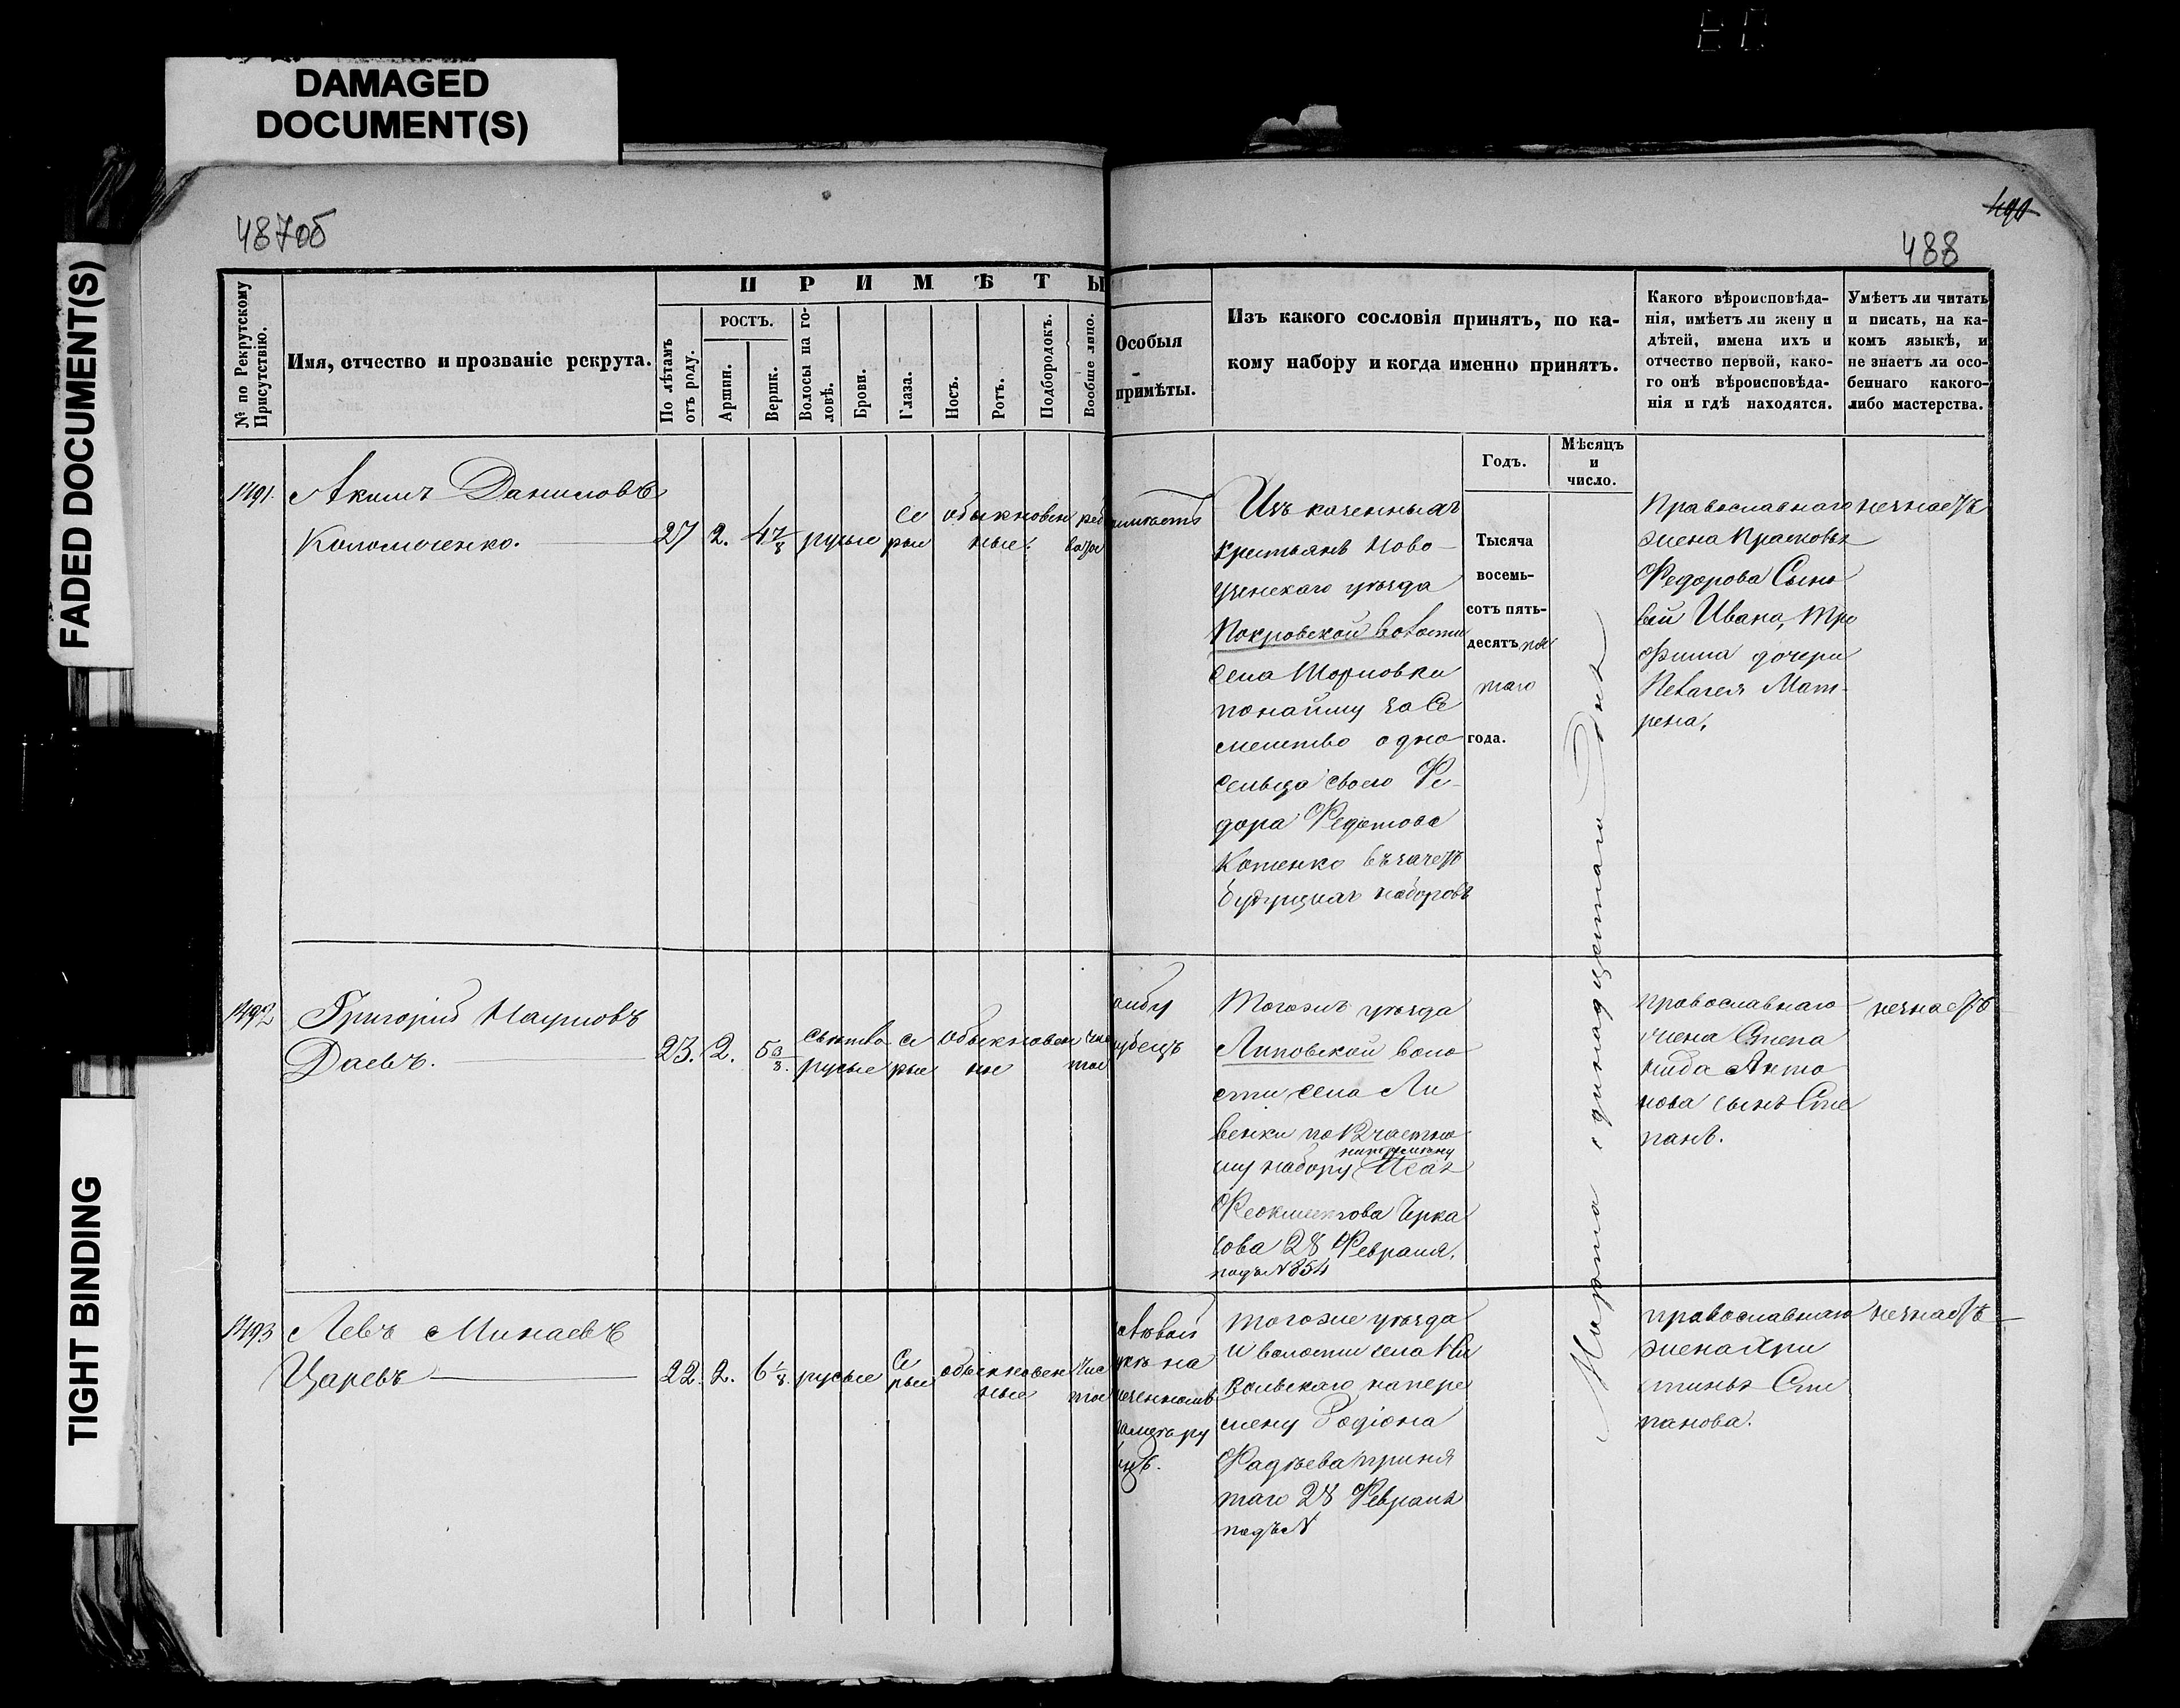 DAMAGED
DOCUMENT(S)
FADED DOCUMENT(S)
TIGHT BINDING
487об
490
488
№ по Рекрутскому Присутствію.
Имя, отчество и прозваніе рекрута.
ПРИМѢТЫ
По лѣтамъ отъ роду.
РОСТЪ.
Аршин.
Вершк.
Волосы на головѣ.
Брови.
Глаза.
Носъ.
Ротъ.
Подбородокъ.
Вообще лицо.
Особыя
примѣты.
Изъ какого сословія принятъ, по ка-
кому набору и когда именно принятъ.
Годъ.
Мѣсяцъ
и
число.
Какого вѣроисповѣда-
нія, имѣетъ ли жену и
дѣтей, имена ихъ и
отчество первой, како-
го онѣ вѣроисповѣда-
нія и гдѣ находятся.
Умѣетъ ли читать
и писать, на ка-
комъ языкѣ, и
не знаетъ ли осо-
беннаго какого-
либо мастерства.
1491.
Акимъ Даниловъ
Коломоченко.
27 2. 4 7/8 русые
се
рые
обыкновен
ные.
Изъ казенныхъ
крестьянъ Ново
узенскаго уѣзда
Покровской волости
села Шорновки
по найму за Се
мейство одно
сельца своего Фе-
дора Федотова
Котенко въ зачетъ
будущихъ наборовъ
Тысяча
восемь-
сотъ пять-
десятъ пя
таго
года.
Марта одинадцатаго дня
Православнаго
жена Прасковья
Федорова Сыно
вьи Иванъ, Тро
фимъ дочери
Пелагея Мат-
рена.
незнаетъ
1492
Григорій Наумовъ
Даевъ.
23. 2. 5 3/8.
свѣтло
русые
се
рые
обыкновен
ные
чис
тое
Тогожъ уѣзда
Липовской воло
сти села Ли
венки по 12 частно
му набору
наперемѣну
Феоктистова
28 Февраля.
подъ N 854
православнаго
жена Степа
нида Анто
нова сынъ Сте
панъ.
незнаетъ
1493
Левъ Минаевъ
Царевъ
22. 2. 6 1/8. русые
се
рые
обыкновен
ные
чис
тое
Тогоже уѣзда
и волости села Ни
кольскаго напере
мену Родіона
Фадѣева приня
таго 28 Февраля
подъ N
православнаго
жена Хри
стинья Сте
панова.
незнаетъ